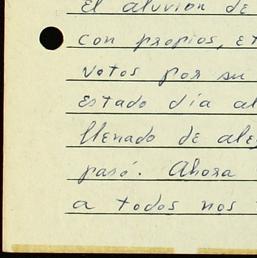 el aluvión de
con propios, et
votos por su
estado día al
llenado de ale
pasó. Ahora
a todos nos